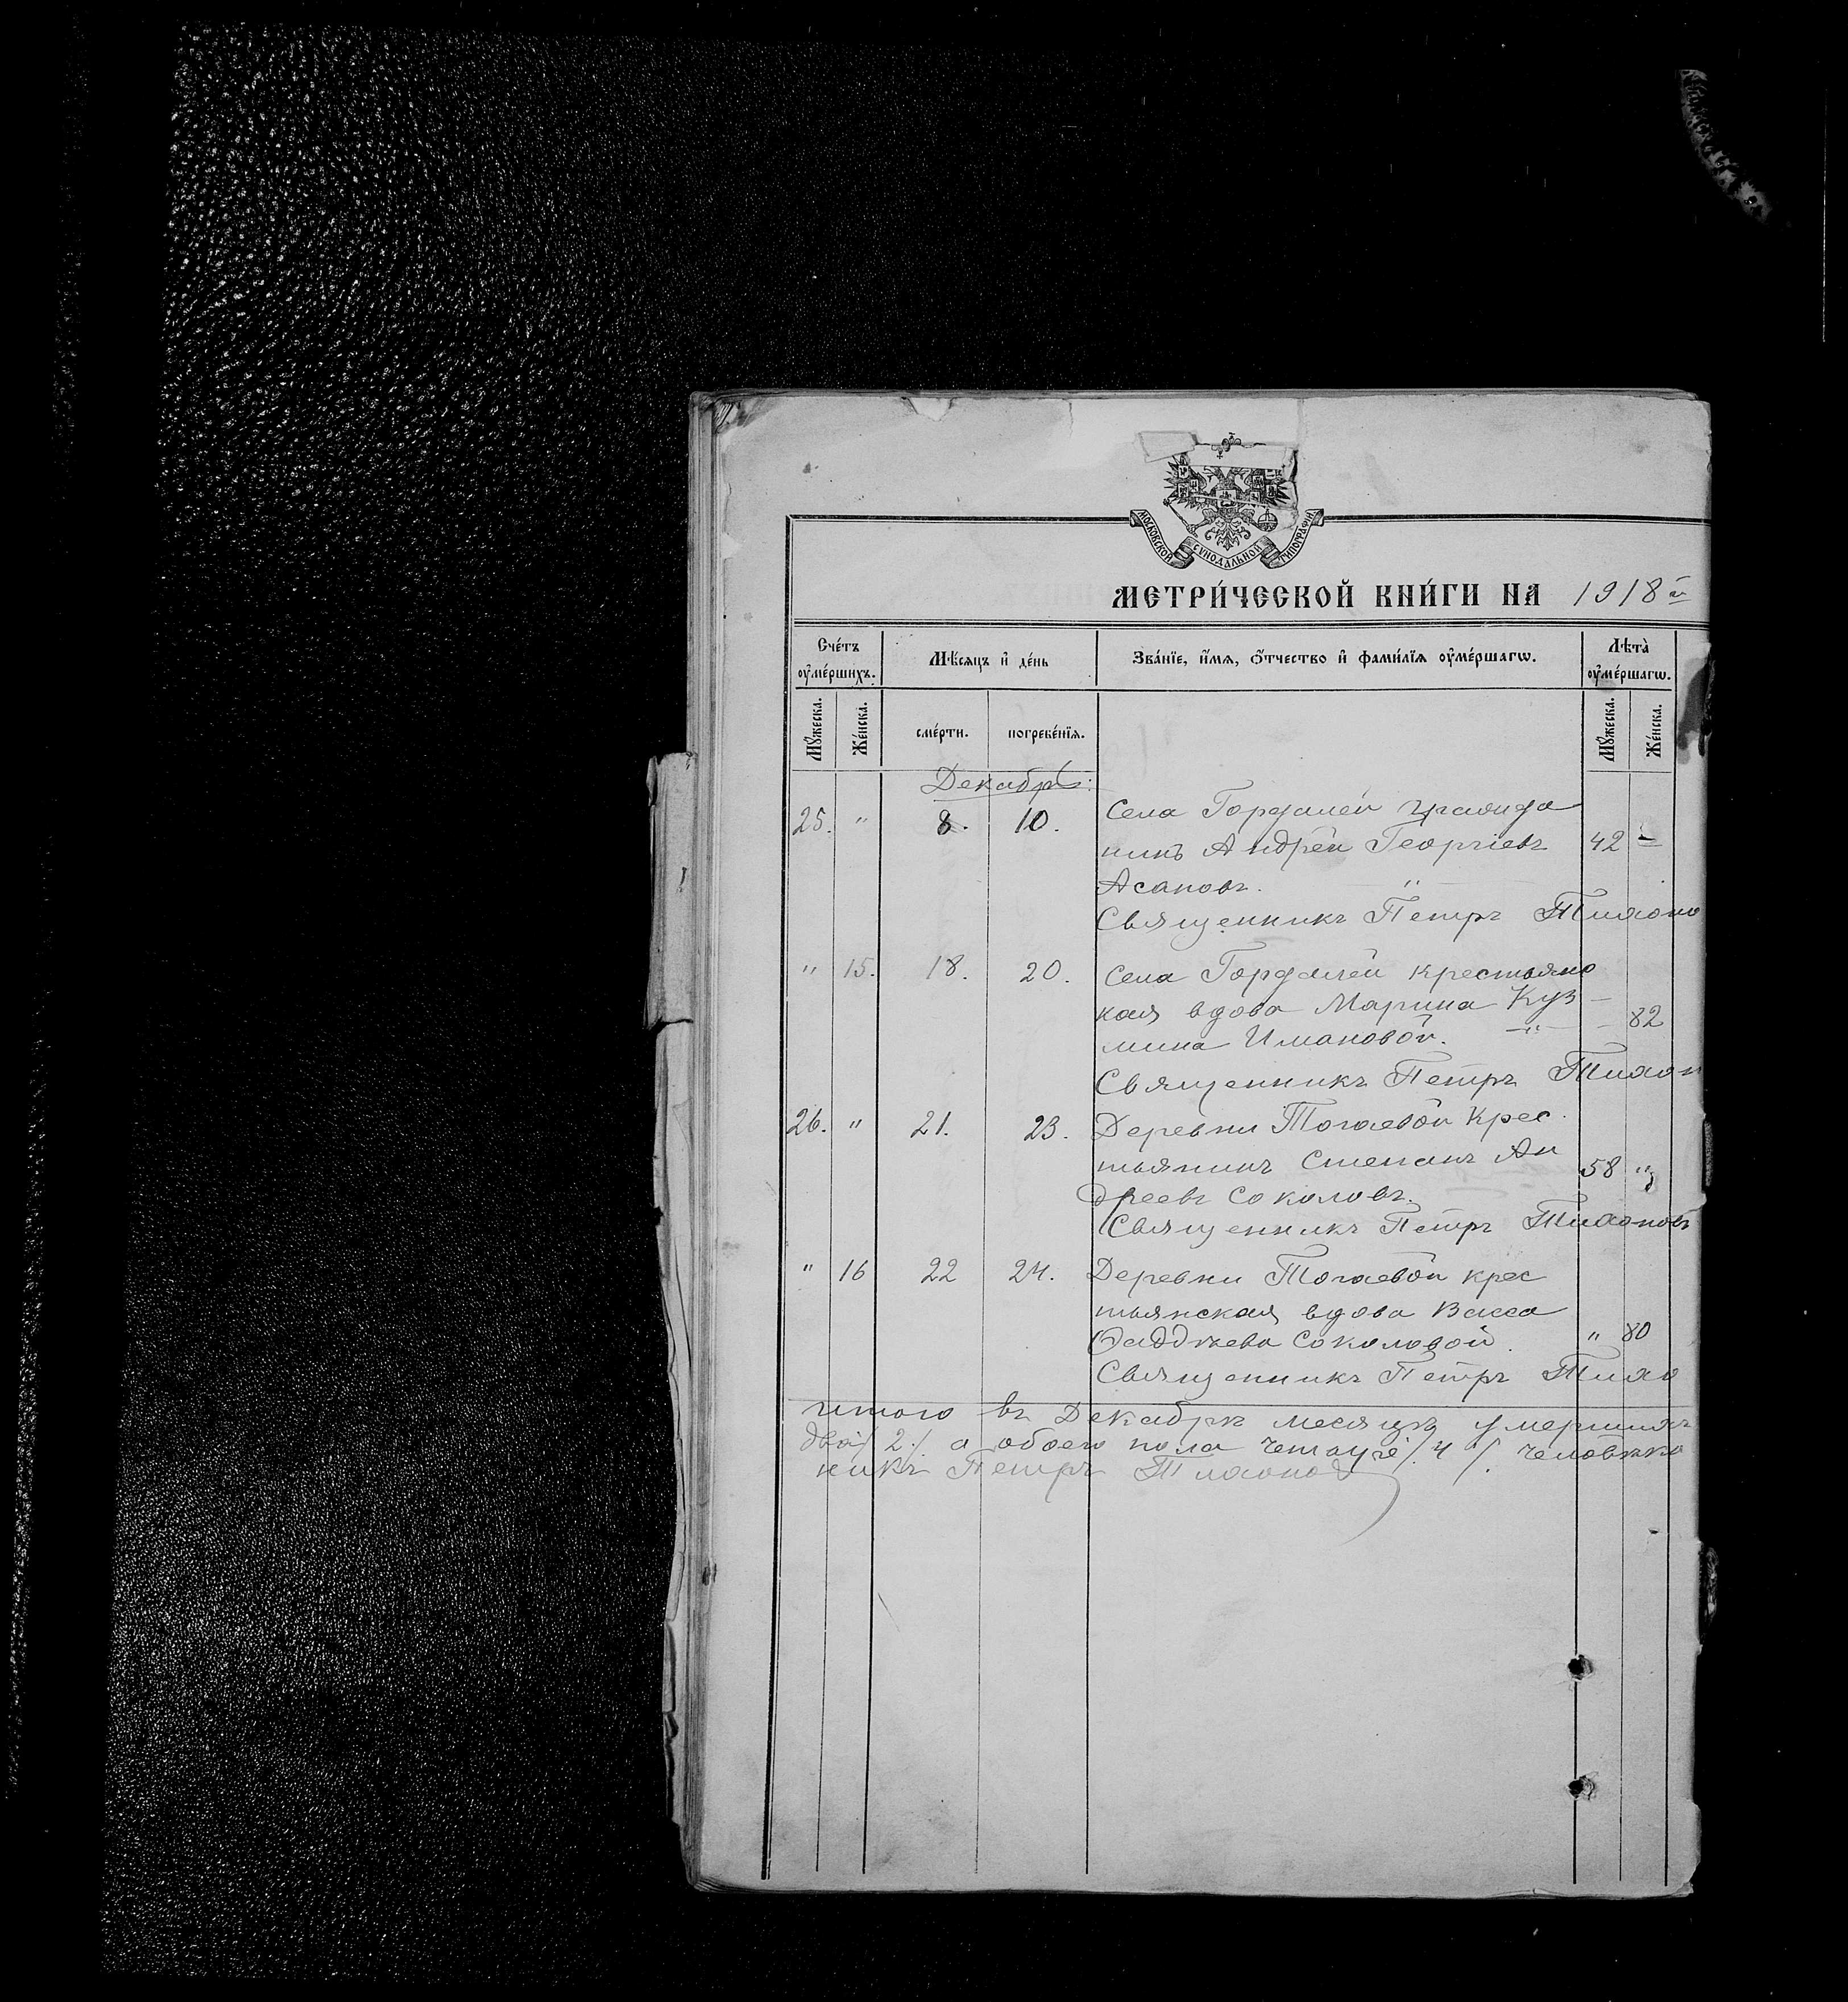 МОСКОВСКОЙ СУНОДАЛЬНОЙ ТИПОГРАФІИ
МЕТРИ́ЧЕСКОЙ КНИ́ГИ НА 1918 й
Сче́тъ оу҆ме́ршихъ.
Мѣ́сѧцъ и҆ де́нь
Зва́нїе, и҆́мѧ, ѻ҆́тчество и҆ фами́лїѧ оу҆ме́ршагѡ.
Лѣта̀ оу҆ме́ршагѡ.
Мꙋ́жеска.
Же́нска.
сме́рти.
погребе́нїѧ.
Мꙋ́жеска.
Же́нска.
Декабрь:
25. " 8. 10. Села Гордалеи гражда
нинъ Андрей Георгіевъ 42 –
Асановъ. "
Священникъ Петръ Тихоно
" 15. 18. 20. Села Гордалеи крестьянс
кая вдова Марина Куз –
мина Имановой. – " – 82
Священникъ Петръ Тихон
26. " 21. 23. Деревни Тогаевой Крес
тьянинъ Степанъ Ан 58 "
дреевъ Соколовъ.
Священникъ Петръ Тихоновъ
" 16 22 24. Деревни Тогаевой крес
тьянская вдова Васса
Фаддѣева Соколовой. " 80
Священникъ Петръ Тихо
итого въ Декабрѣ месяцѣ умершихъ
два /2/. а обоего пола четыре /4/. человѣка
никъ Петръ Тихонов